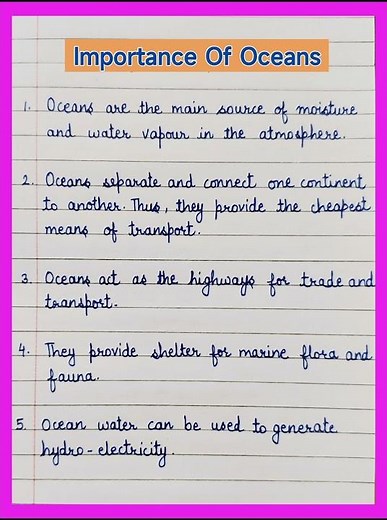 Importance Of Oceans
1. Oceans are the main source of moisture
and water vapour in the atmosphere.
2. Oceans separate and connect one continent
to another. Thus, they provide the cheapest
means of transport.
3. Oceans act as the highways for trade and
transport.
4. They provide shelter for marine flora and
fauna.
5. Ocean water can be used to generate
hydro-electricity.